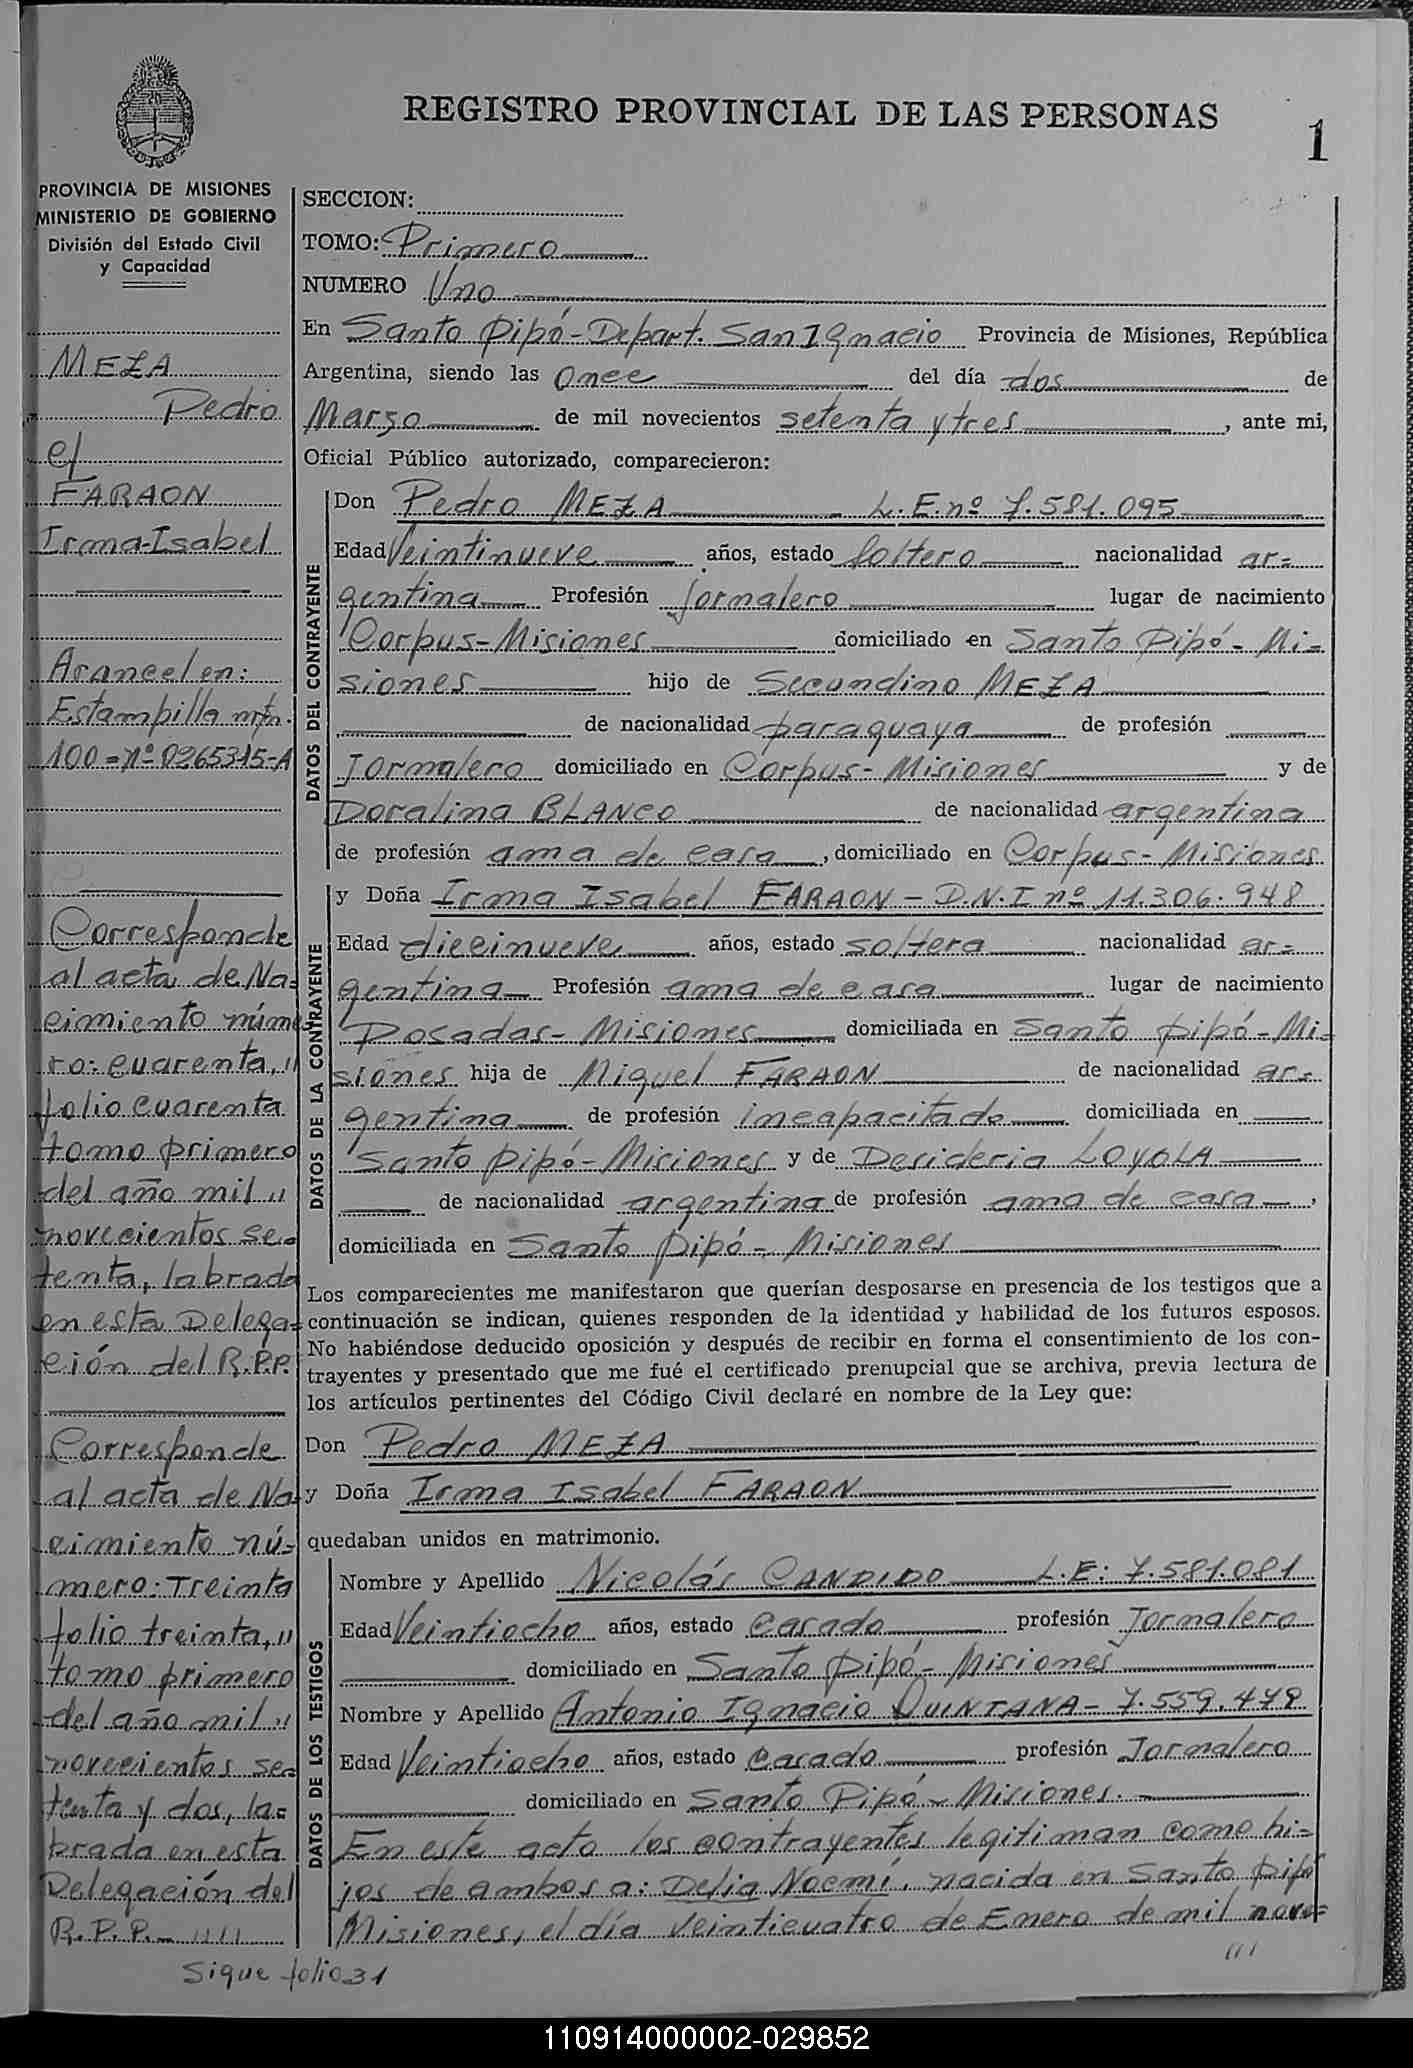 REGISTRO PROVINCIAL DE LAS PERSONAS
1
PROVINCIA DE MISIONES
MINISTERIO DE GOBIERNO
División del Estado Civil
y Capacidad
MEZA
Pedro
c/
FARAON
Irma-Isabel
Arancel en:
Estampilla m/n.
100= nº 0265315-A
Corresponde
al acta de Na=
cimiento núme
ro: cuarenta, "
folio cuarenta
tomo primero
del año mil "
novecientos se=
tenta, labrada
en esta Delega=
ción del R.P.P.
Corresponde
al acta de Na
cimiento nú=
mero: Treinta
folio treinta, "
tomo primero
del año mil "
novecientos se=
tenta y dos, la=
brada en esta
Delegación del
R.P.P.
Sigue folio 31
SECCION:
TOMO: Primero
NUMERO Uno
En Santo Pipó-Depart. San Ignacio Provincia de Misiones, República
Argentina, siendo las Once del día dos de
Marzo de mil novecientos setenta y tres, ante mi,
Oficial Público autorizado, comparecieron:
DATOS DEL CONTRAYENTE
Don Pedro MEZA L.E nº 7.581.095
Edad Veintinueve años, estado Soltero nacionalidad ar=
gentina Profesión Jornalero lugar de nacimiento
Corpus-Misiones domiciliado en Santo Pipó-Mi=
siones hijo de Secundino MEZA
de nacionalidad paraguaya de profesión
Jornalero domiciliado en Corpus-Misiones y de
Doralina BLANCO de nacionalidad argentina
de profesión ama de casa, domiciliado en Corpus-Misiones
DATOS DE LA CONTRAYENTE
y Doña Irma Isabel FARAON - D.N.I nº 11.306.948
Edad diecinueve años, estado soltera nacionalidad ar=
gentina Profesión ama de casa lugar de nacimiento
Posadas-Misiones domiciliada en Santo Pipó-Mi=
siones hija de Miguel FARAON de nacionalidad ar=
gentina de profesión incapacitado domiciliada en
Santo Pipó-Misiones y de Desideria LOYOLA
de nacionalidad argentina de profesión ama de casa,
domiciliada en Santo Pipó-Misiones
Los comparecientes me manifestaron que querían desposarse en presencia de los testigos que a
continuación se indican, quienes responden de la identidad y habilidad de los futuros esposos.
No habiéndose deducido oposición y después de recibir en forma el consentimiento de los con-
trayentes y presentado que me fué el certificado prenupcial que se archiva, previa lectura de
los artículos pertinentes del Código Civil declaré en nombre de la Ley que:
Don Pedro MEZA
y Doña Irma Isabel FARAON
quedaban unidos en matrimonio.
DATOS DE LOS TESTIGOS
Nombre y Apellido Nicolás CANDIDO L.E: 7.581.081
Edad Veintiocho años, estado Casado profesión Jornalero
domiciliado en Santo Pipó-Misiones
Nombre y Apellido Antonio Ignacio QUINTANA- 7.559.479
Edad Veintiocho años, estado Casado profesión Jornalero
domiciliado en Santo Pipó-Misiones.
En este acto los contrayentes legitiman como hi=
jos de ambos a: Delia Noemí, nacida en Santo Pipó
Misiones, el día veinticuatro de Enero de mil nove=
///
110914000002-029852